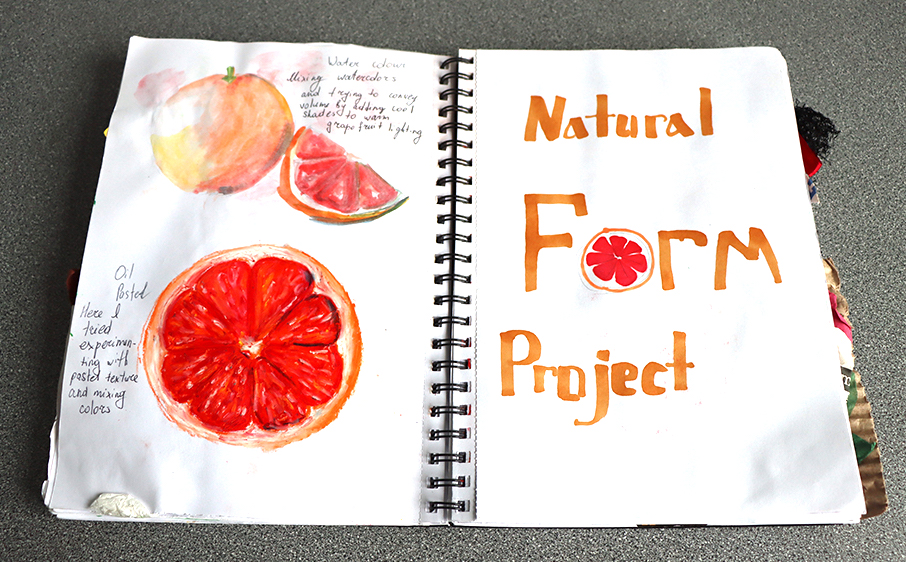 Water colour
Mixing watercolors
and trying to convey
volume by adding cool
shades to warm
grapefruit lighting
Oil
Pastel
Here I
tried
experimen-
ting with
pastel texture
and mixing
colors
Natural
Form
Project